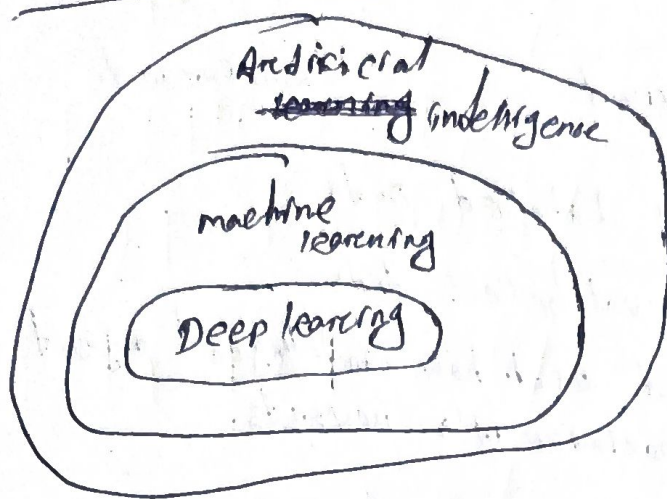 Artificial
learning intelligence
machine
learning
Deep learning